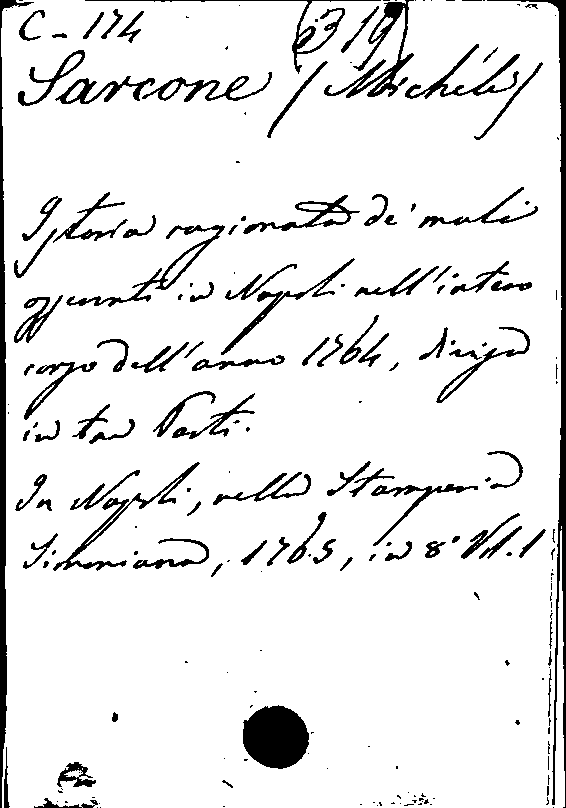 C - 174 319
Sarcone (Michele)
Istoria ragionata de' mali
osservati in Napoli nell'intero
corso dell'anno 1764, divisa
in tre Parti.
In Napoli, nella Stamperia
Simoniana, 1765, in 8° Vol. 1